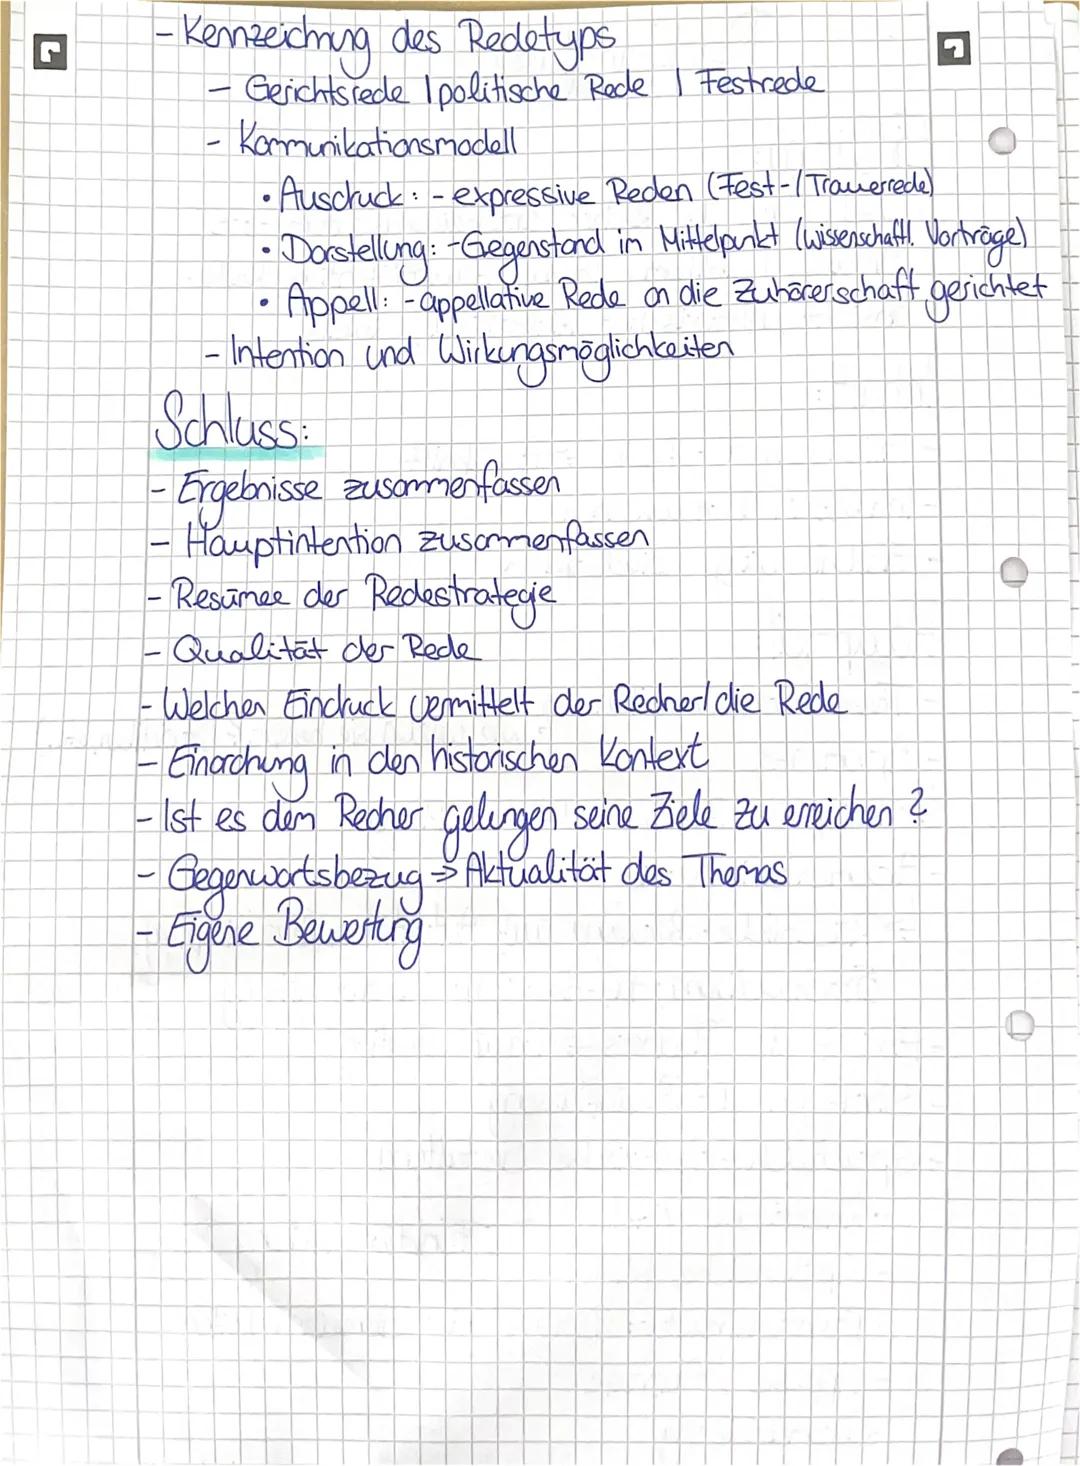 - Kennzeichnung des Redetyps
- Gerichtsrede | politische Rede | Festrede
- Kommunikationsmodell
• Ausdruck: - expressive Reden (Fest-/Trauerrede)
• Darstellung: - Gegenstand im Mittelpunkt (wissenschaftl. Vorträge)
• Appell: - appellative Rede an die Zuhörerschaft gerichtet
- Intention und Wirkungsmöglichkeiten
Schluss:
- Ergebnisse zusammenfassen
- Hauptintention zusammenfassen
- Resümee der Redestrategie
- Qualität der Rede
- Welchen Eindruck vermittelt der Redner/die Rede
- Einordnung in den historischen Kontext
- Ist es dem Redner gelungen seine Ziele zu erreichen?
- Gegenwartsbezug → Aktualität des Themas
- Eigene Bewertung